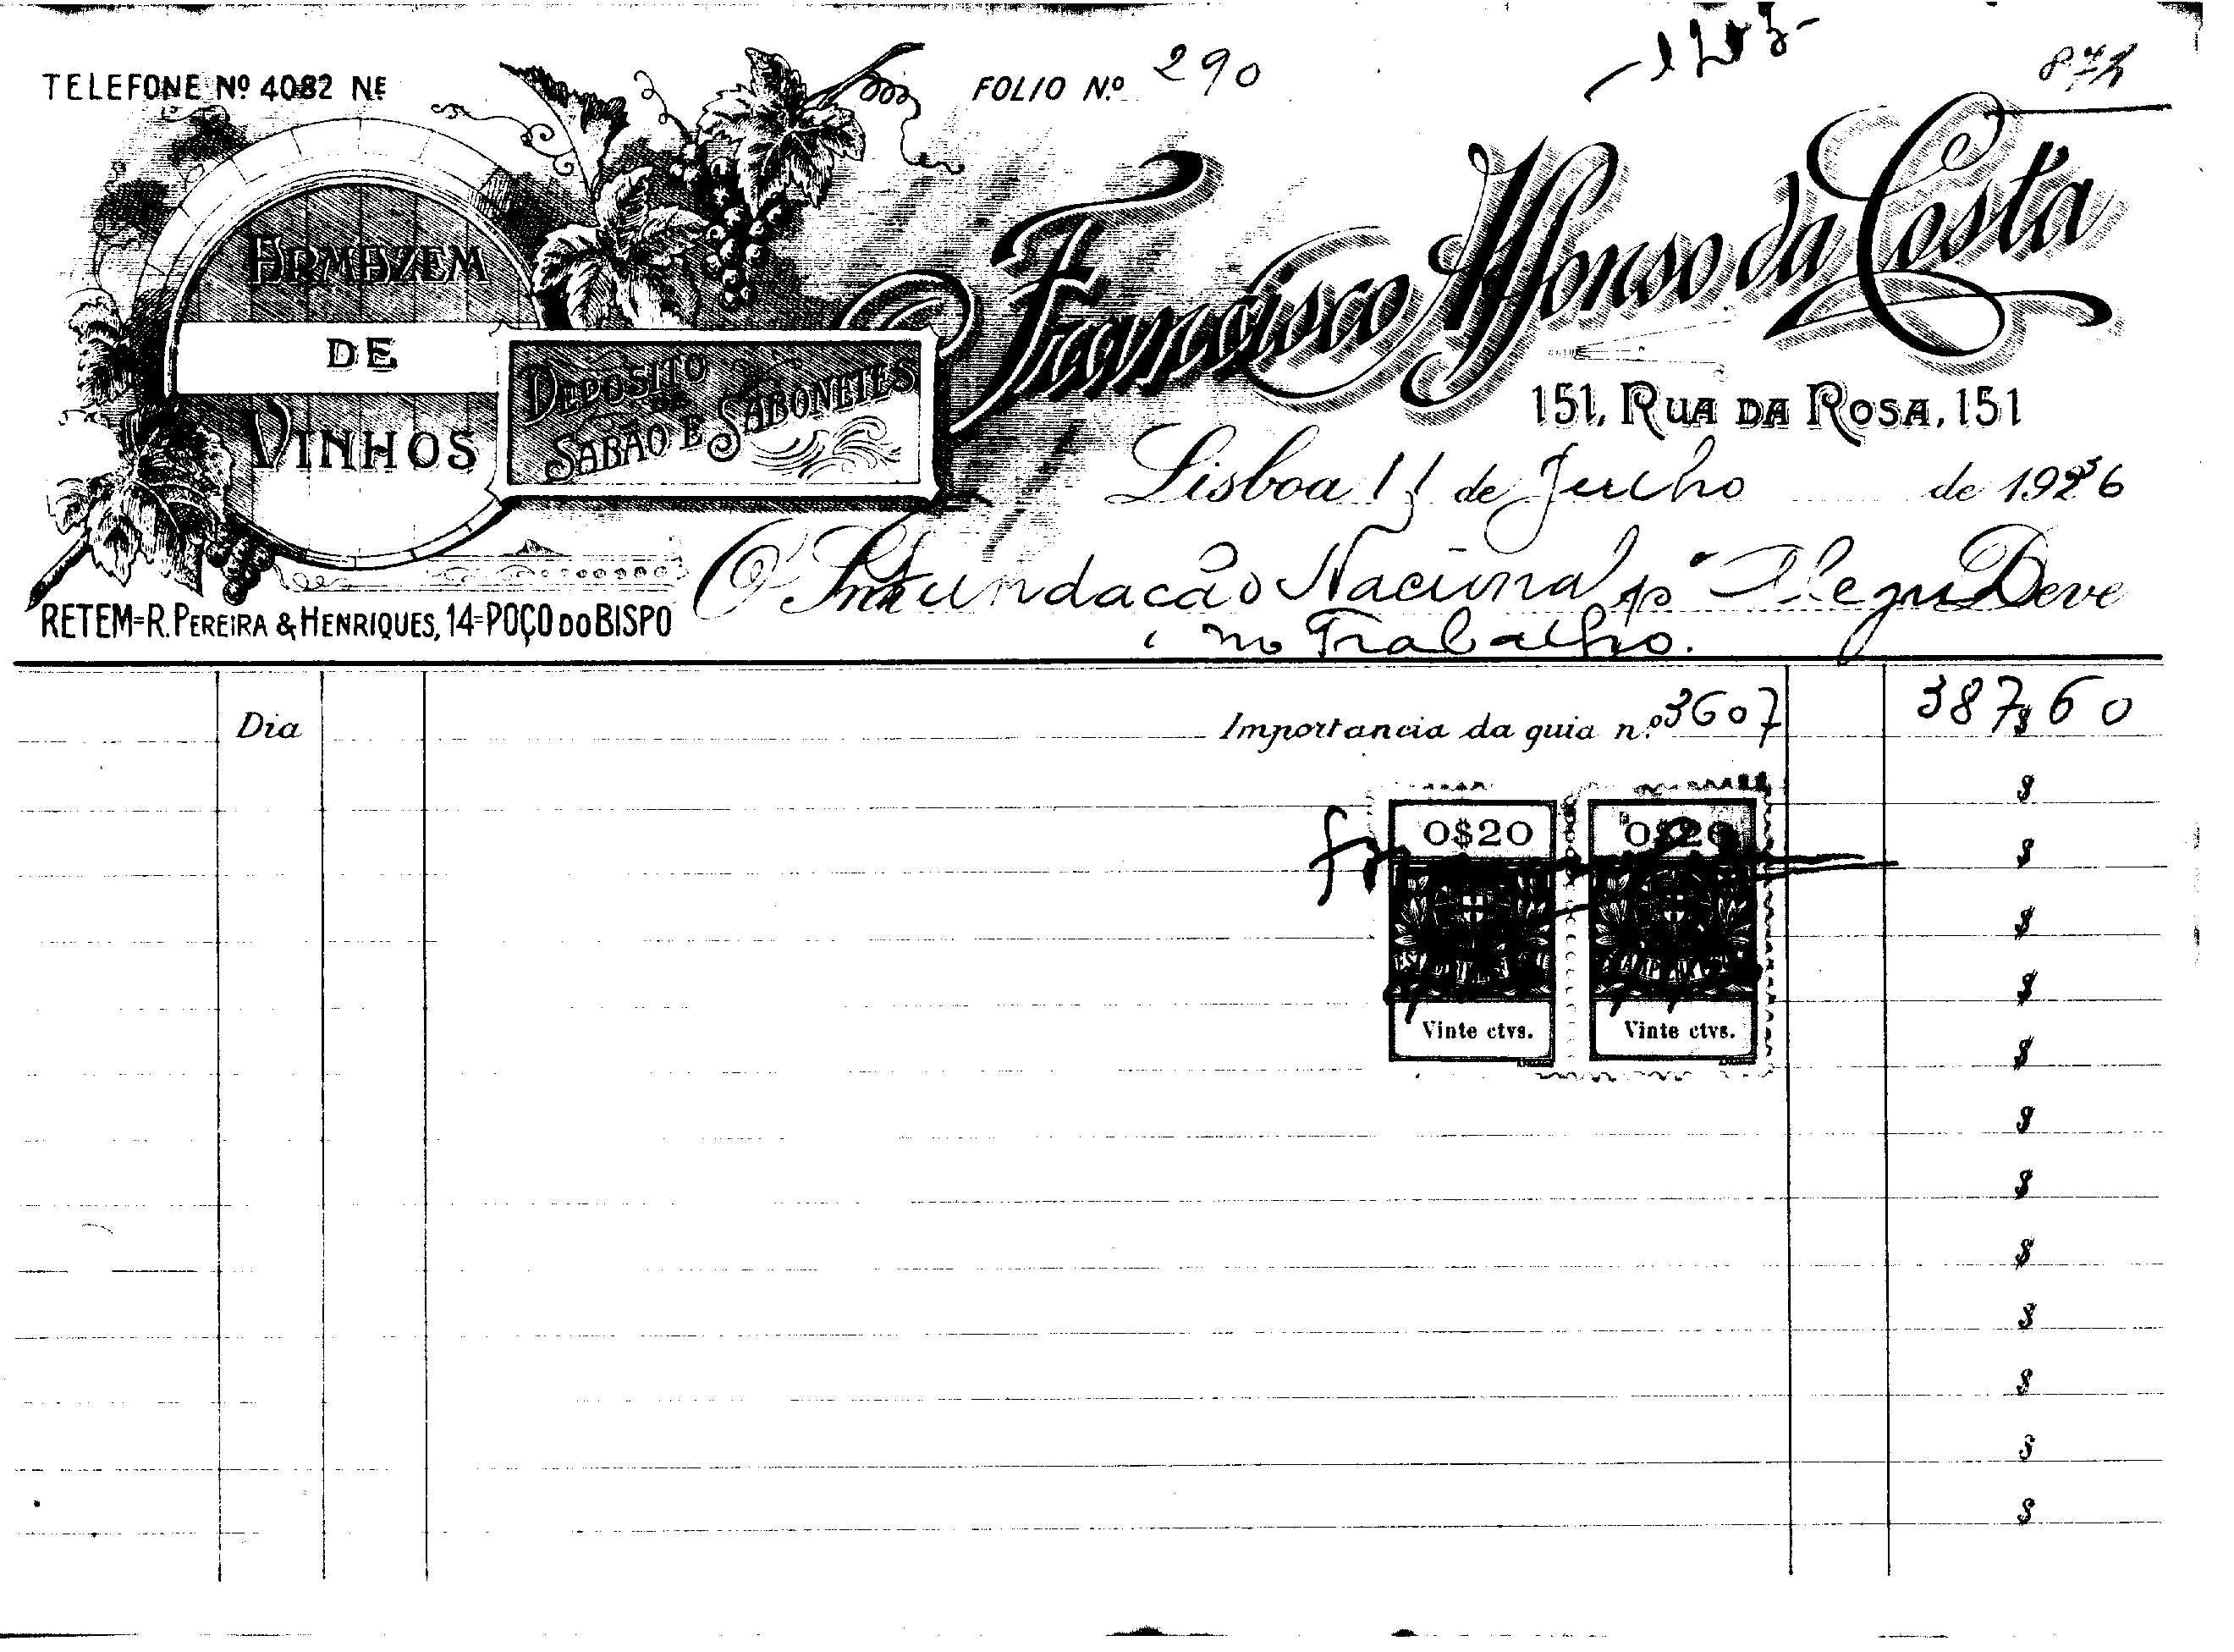 TELEFONE Nº 4082 NE
FOLIO N.º 290
ARMAZEM
DE
VINHOS
DEPOSITO
DE
SABÃO E SABONETES
Francisco Affonso da Costa
151, RUA DA ROSA, 151
Lisboa 11 de Julho de 1936
O Snr. Fundacão Nacional pª Alegri Deve
no Trabalho.
RETEM=R. PEREIRA & HENRIQUES, 14=POÇO DO BISPO
Dia Importancia da guia n.º 3607 387$60
$
0$20 0$20
$
$
$
Vinte ctvs. Vinte ctvs.
$
$
$
$
$
$
$
$